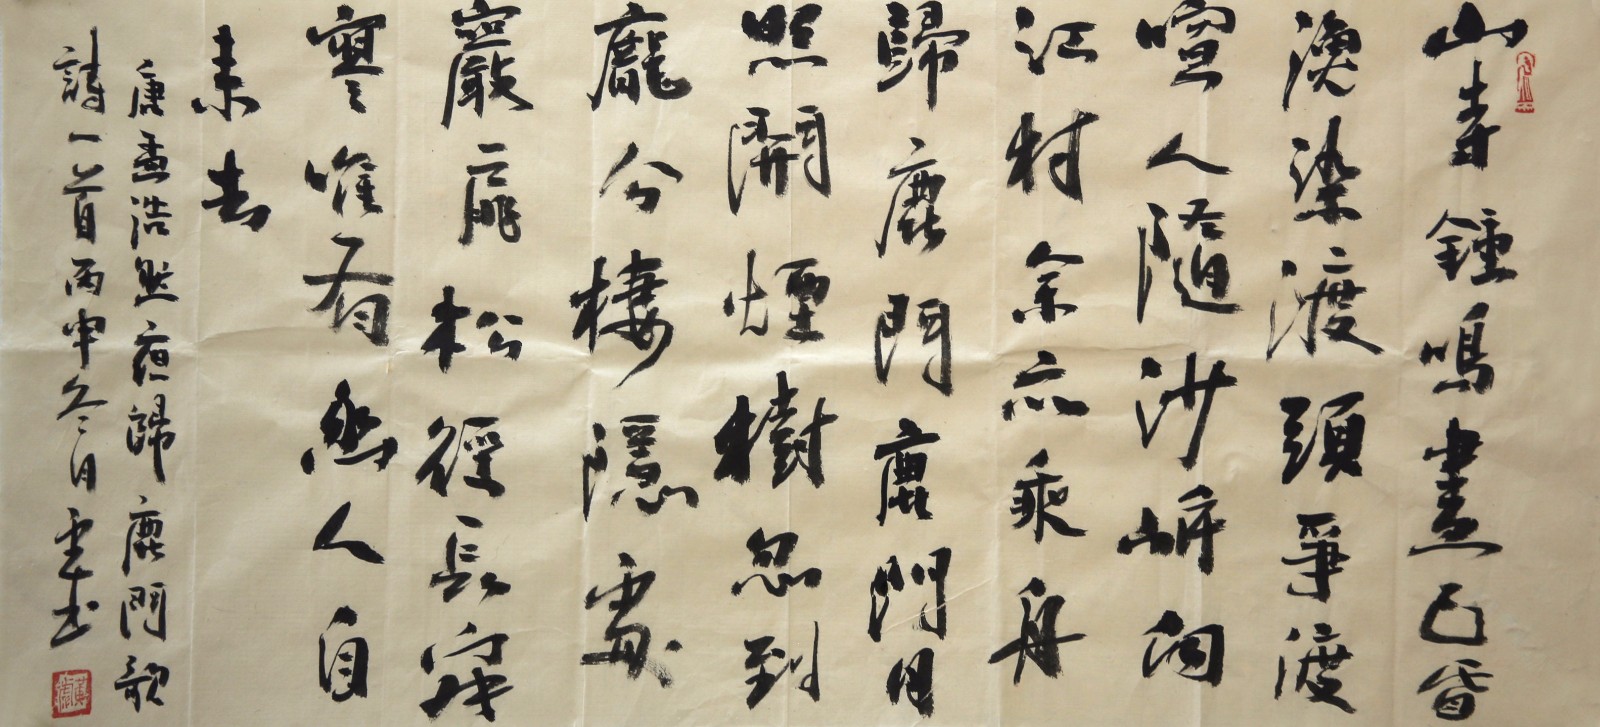 山寺鍾鳴晝已昏
漁梁渡頭爭渡
喧人隨沙岸向
江村余亦乘舟
歸鹿門鹿門月
照開煙樹忽到
龐公棲隱處
巖扉松徑長寂
寥唯有幽人自
来去
唐孟浩然夜歸鹿門歌
詩一首丙申冬月书